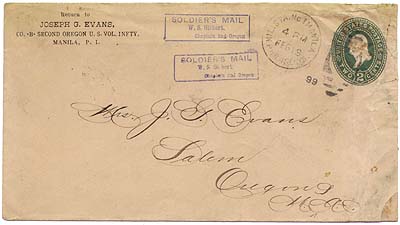 Return to
JOSEPH G. EVANS,
CO. -B- SECOND OREGON U. S. VOL. INFTY.
MANILA, P. I.
SOLDIER'S MAIL
W. S. Gilbert,
Chaplain 2nd Oregon
SOLDIER'S MAIL
W. S. Gilbert,
Chaplain 2nd Oregon
4 PM
FEB 9
99
UNITED STATES
TWO 2 CENTS
Mrs. J. G. Evans
Salem
Oregon
U.S.A.